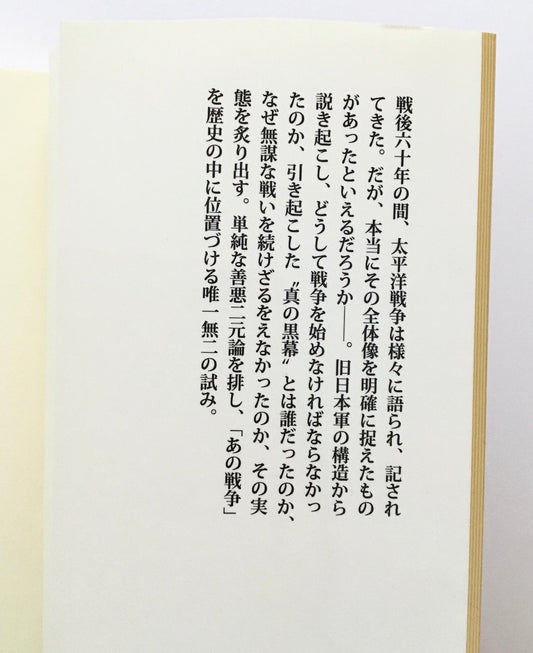 戦後六十年の間、太平洋戦争は様々に語られ、記され
てきた。だが、本当にその全体像を明確に捉えたもの
があったといえるだろうか――。旧日本軍の構造から
説き起こし、どうして戦争を始めなければならなかっ
たのか、引き起こした〝真の黒幕〟とは誰だったのか、
なぜ無謀な戦いを続けざるをえなかったのか、その実
態を炙り出す。単純な善悪二元論を排し、「あの戦争」
を歴史の中に位置づける唯一無二の試み。